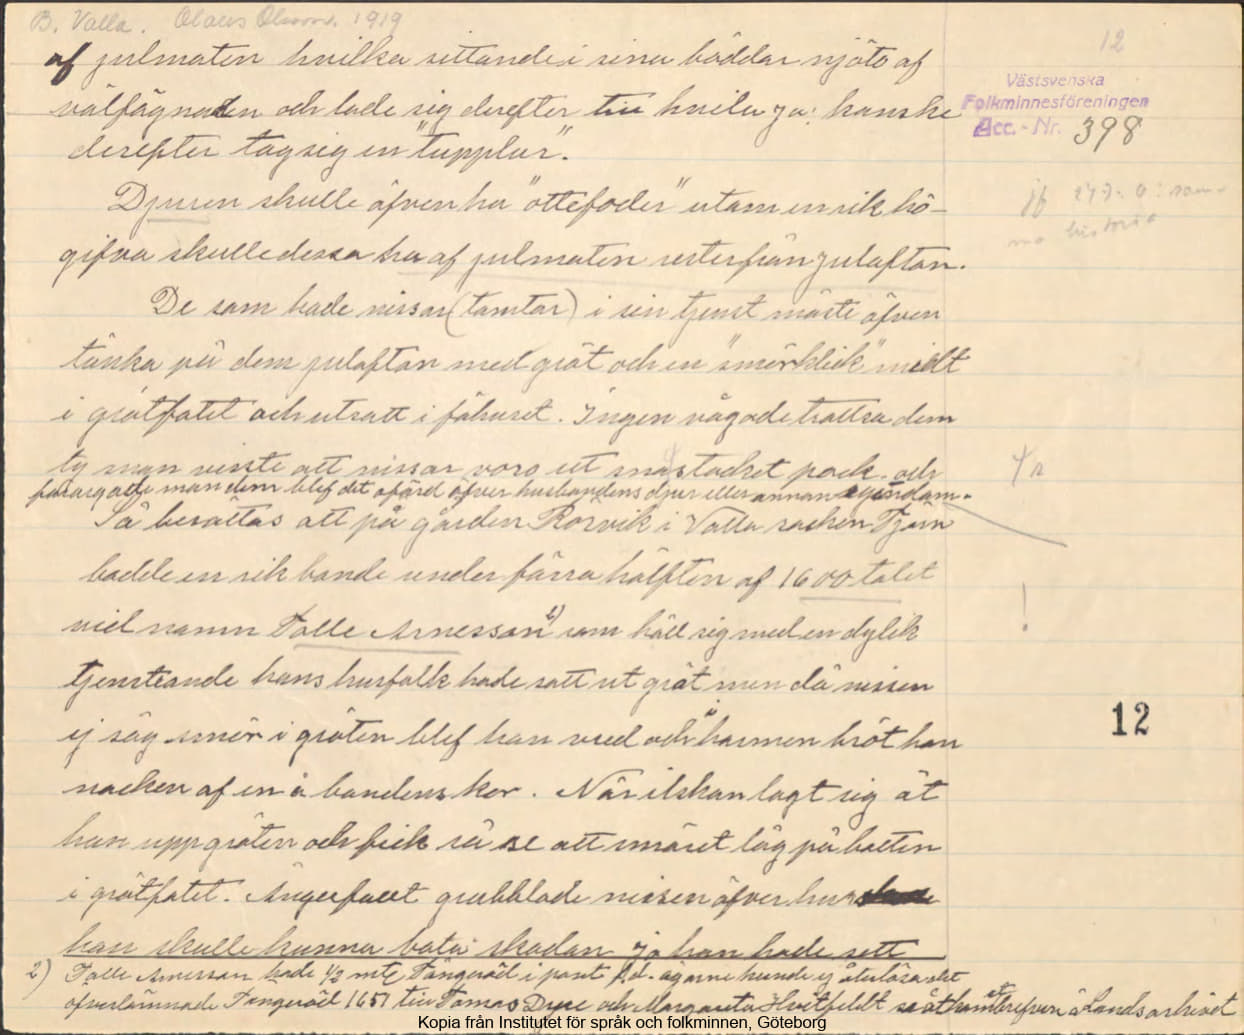 B. Valla. Olaus Olsson. 1919
12
af julmaten hvilka sittande i sina bäddar njöto af
välfägnaden och lade sig derefter till hvila ja: kanske
derefter tog sig en "tupplur".
Västsvenska
Folkminnesföreningen
Acc.-Nr. 398
Djuren skulle äfven ha "ottefoder" utom en rik hö-
gifva skulle dessa ha af julmaten rester från julaftan.
jf 247: 6: sam-
ma historia
De som hade nissar (tomtar) i sin tjenst måste äfven
tänka på dem julaftan med gröt och en "smörklick" midt
i grötfatet och utsatt i fähuset. Ingen vågade trottsa dem
ty man visste att nissar voro ett snarstucket pack och
förargade man dem blef det ofärd öfver husbondens djur eller annan egendom.
Så berättas att på gården Rörvik i Valla socken Tjörn
bodde en rik bonde under förra hälften af 1600 talet
!
vid namn Tolle Arnesson 2) som höll sig med en dylik
tjensteande hans husfolk hade satt ut gröt men då nissen
ej såg smör i gröten blef han vred och i harmen bröt han
12
nacken af en å bondens kor. När ilskan lagt sig åt
han upp gröten och fick så se att smöret låg på botten
i grötfatet. Ångerfull grubblade nissen öfver hur
han skulle kunna bota skadan jo han hade sett
2) Tolle Arnesson hade 1/2 mtl Tångeröd i pant f.d. ägarne kunde ej återlösa det
öfverlämnade Tångeröd 1657 till Tomas Dyre och Margareta Hvitfeldt se åtkomstbrefven å Landsarkivet
Kopia från Institutet för språk och folkminnen, Göteborg